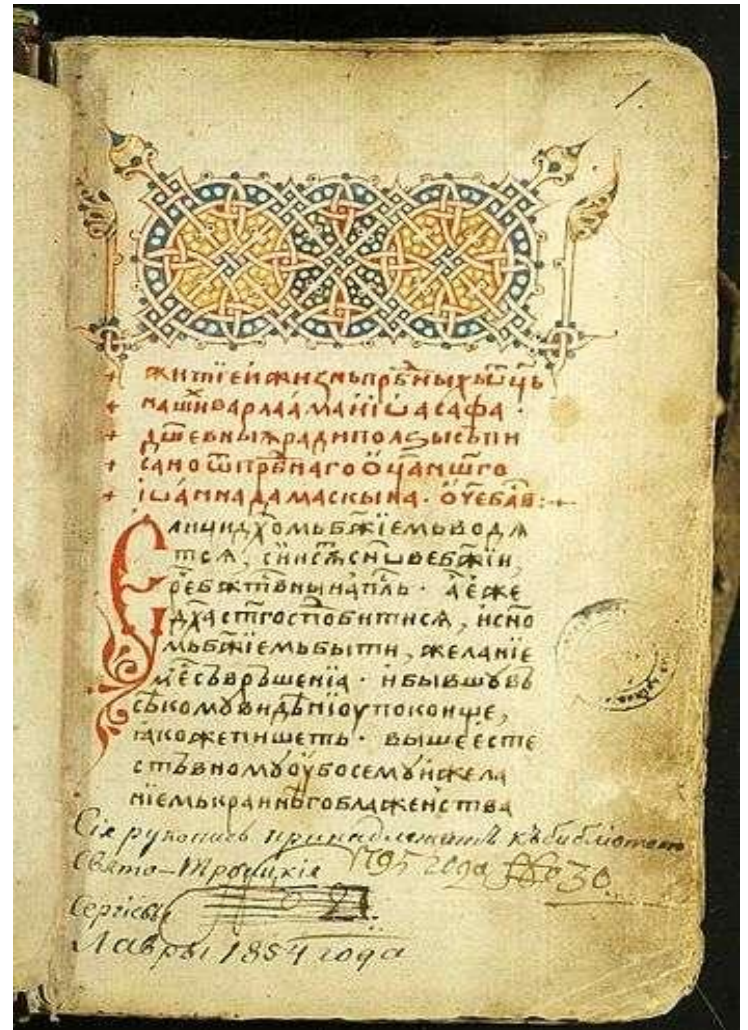 1.
житїе и жизнь прпⷣбныхъ ѿц҃ь
нашиⷯ варлаама и і҆ѡасафа ·
дш҃евныѧ ради ползы съпи
сано ѿ прпⷣбнаго ѻ҆ц҃а нш҃го
і҆ѡанна дамаскына ·
Єлици дх҃омь бж҃їемь водѧ
тсѧ, сїи сѫть сн҃ове бж҃їи,
рече бжⷭ҇твныи ап҃ль · а є҆же
дх҃а ст҃го сподобитисѧ, и сн҃о
мь бж҃їемь быти, желанїе
мь є҆сть съвръшенїа · и бывшꙋ въ
сѣкомꙋ видѣнїоу покоище,
ꙗкоже пишеть · выше є҆сте
стъвномꙋ оубо семꙋ и жела
нїемь краинѣго блаженства
Сія рукопись принадлежитъ къ библіотекѣ
Свято-Троицкія 1795 года № 30.
Сергіевы 21.
Лавры 1854 года